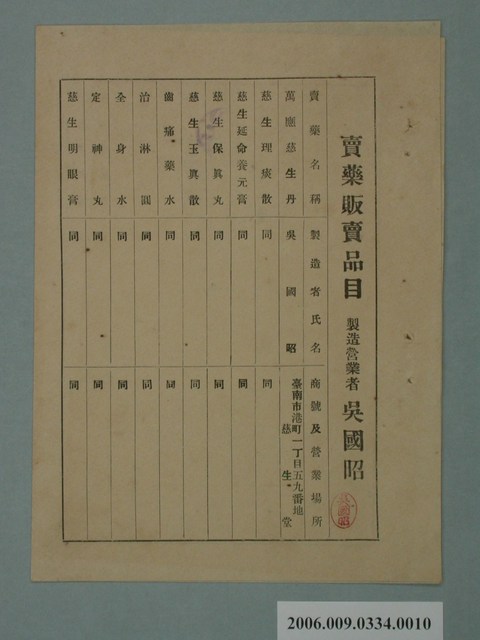 賣藥販賣品目 製造營業者 吳國昭
賣藥名稱 製造者氏名 商號及營業場所
萬應慈生丹 吳國昭 臺南市港町一丁目五九番地 慈生堂
慈生理痰散 同 同
慈生延命養元膏 同 同
慈生保眞丸 同 同
慈生玉眞散 同 同
齒痛藥水 同 同
治淋圓 同 同
全身水 同 同
定神丸 同 同
慈生明眼膏 同 同
2006.009.0334.0010